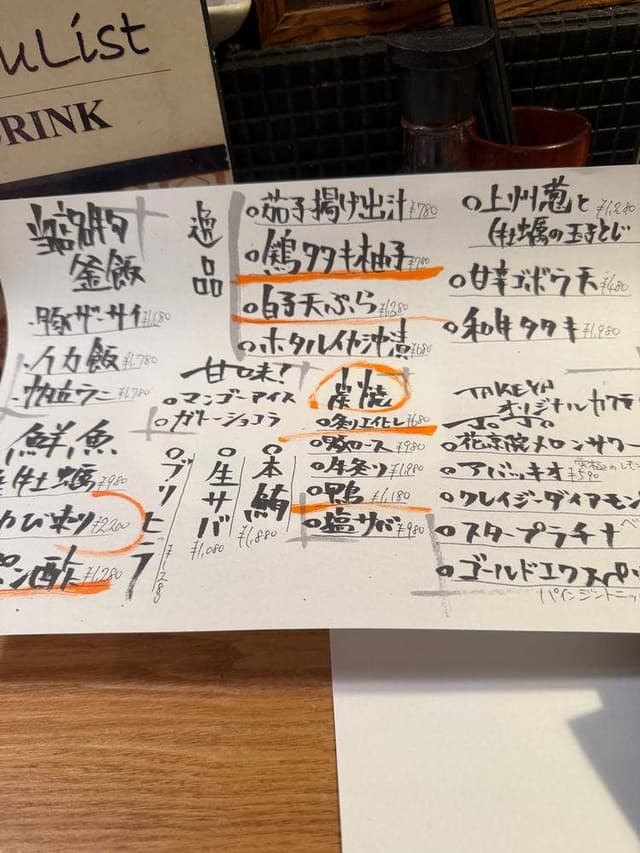 uList
DRINK
当店名物
釜飯
・豚ザーサイ ¥1,680
・イカ飯 ¥1,780
・帆立ウニ ¥1,780
逸品
○茄子揚げ出汁 ¥780
○鶏タタキ柚子 ¥780
○白子天ぷら ¥1,280
○ホタルイカ沖漬 ¥680
○上州葱と ¥1,280
牡蠣の玉子とじ
○甘辛ゴボウ天 ¥480
○和牛タタキ ¥1,980
甘味!
○マンゴーアイス
○ガトーショコラ
炭焼
○炙りエイヒレ ¥680
○豚ロース ¥980
○牛炙り ¥1,980
○鴨 ¥1,180
○塩サバ ¥980
鮮魚
牡蠣 ¥980
わび刺り ¥2,200
ポン酢 ¥1,280
○ブリヒラ ¥1,280
○生サバ ¥1,080
○本鮪 ¥1,880
TAKEYA
オリジナルカクテ
ジョジョ
○花京院メロンサワー
○アバッキオ ¥590
○クレイジーダイアモン
○スタープラチナ
○ゴールドエクスペリ
パインジントニッ